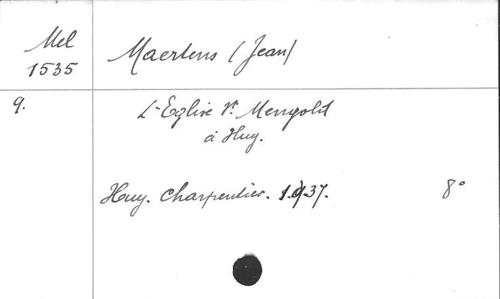 Mel
1535
Maertens (Jean)
9.
L'Eglise St Mengold
à Huy.
Huy. Charpentier. 1937.
8°